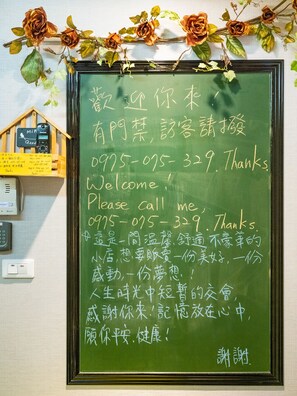 歡迎你來!
有門禁,訪客請撥
0975-075-329. Thanks.
Welcome!
Please call me,
0975-075-329, Thanks.
這是一間溫馨.舒適.不豪華的
小店.想要販賣一份美好,一份
感動,一份夢想.!
人生時光中短暫的交會,
感謝你來!記憶放在心中,
願你平安.健康!
謝謝.